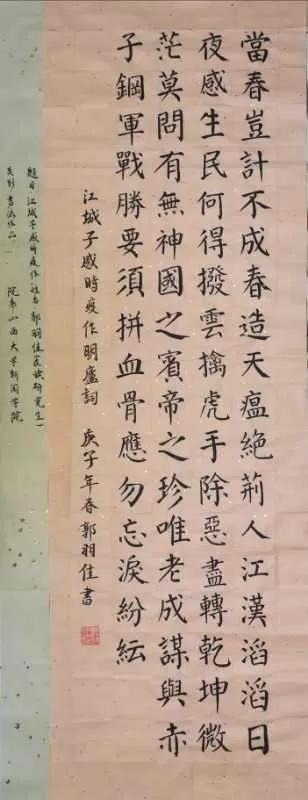 當春豈計不成春造天瘟絕荊人江漢滔滔日
夜感生民何得撥雲擒虎手除惡盡轉乾坤微
茫莫問有無神國之賓帝之珍唯老成謀與赤
子鋼軍戰勝要須拼血骨應勿忘淚紛紜
江城子感時疫作明廬詞 庚子年春郭羽佳書
題目 江城子感時疫作 姓名 郭羽佳(在讀研究生)
類別 書法作品 院系 山西大學新聞學院